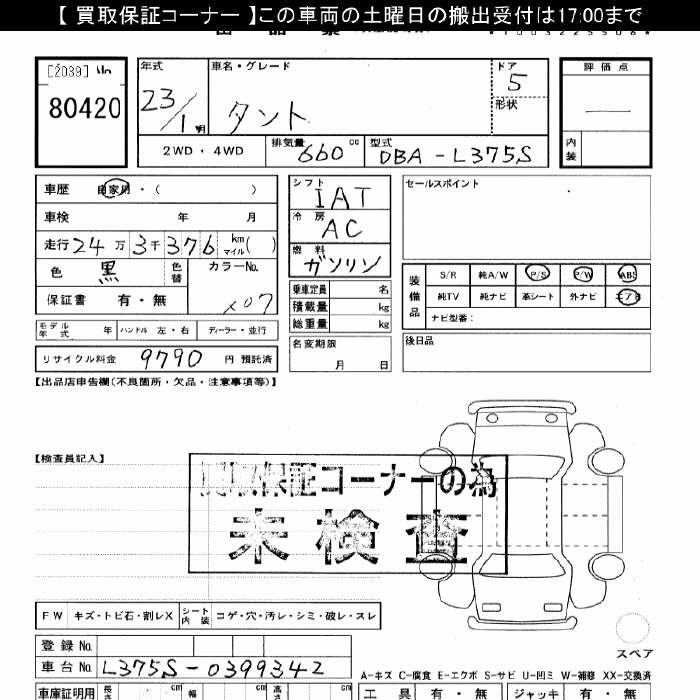 【 買取保証コーナー 】この車両の土曜日の搬出受付は17:00まで
[2039] No
80420
年式
23/1 月
車名・グレード
タント
ドア
5
形状
評価点
—
内装
2WD・4WD
排気量 660 cc
型式 DBA-L375S
車歴 自家用・( )
車検 年 月
走行 24万 3千 376 km マイル( )
色 黒 色替
カラーNo. X07
保証書 有・無
シフト IAT
冷房 AC
燃料 ガソリン
乗車定員 名
積載量 kg
総重量 kg
名変期限
月 日
セールスポイント
装備品
S/R 純A/W P/S P/W ABS
純TV 純ナビ 革シート 外ナビ エアB
ナビ型番:
後日品
モデル年式 年 ハンドル 左・右 ディーラー・並行
リサイクル料金 9790 円 預託済
【出品店申告欄(不良箇所・欠品・注意事項等)】
【検査員記入】
買取保証コーナーの為
未検査
FW キズ・トビ石・割レX シート内装 コゲ・穴・汚レ・シミ・破レ・スレ
登録 No.
車台 No. L375S-0399342
スペア
A-キズ C-腐食 E-エクボ S-サビ U-凹ミ W-補修 XX-交換済
車庫証明用 長さ cm 幅 cm 高さ cm
工具 有・無 ジャッキ 有・無